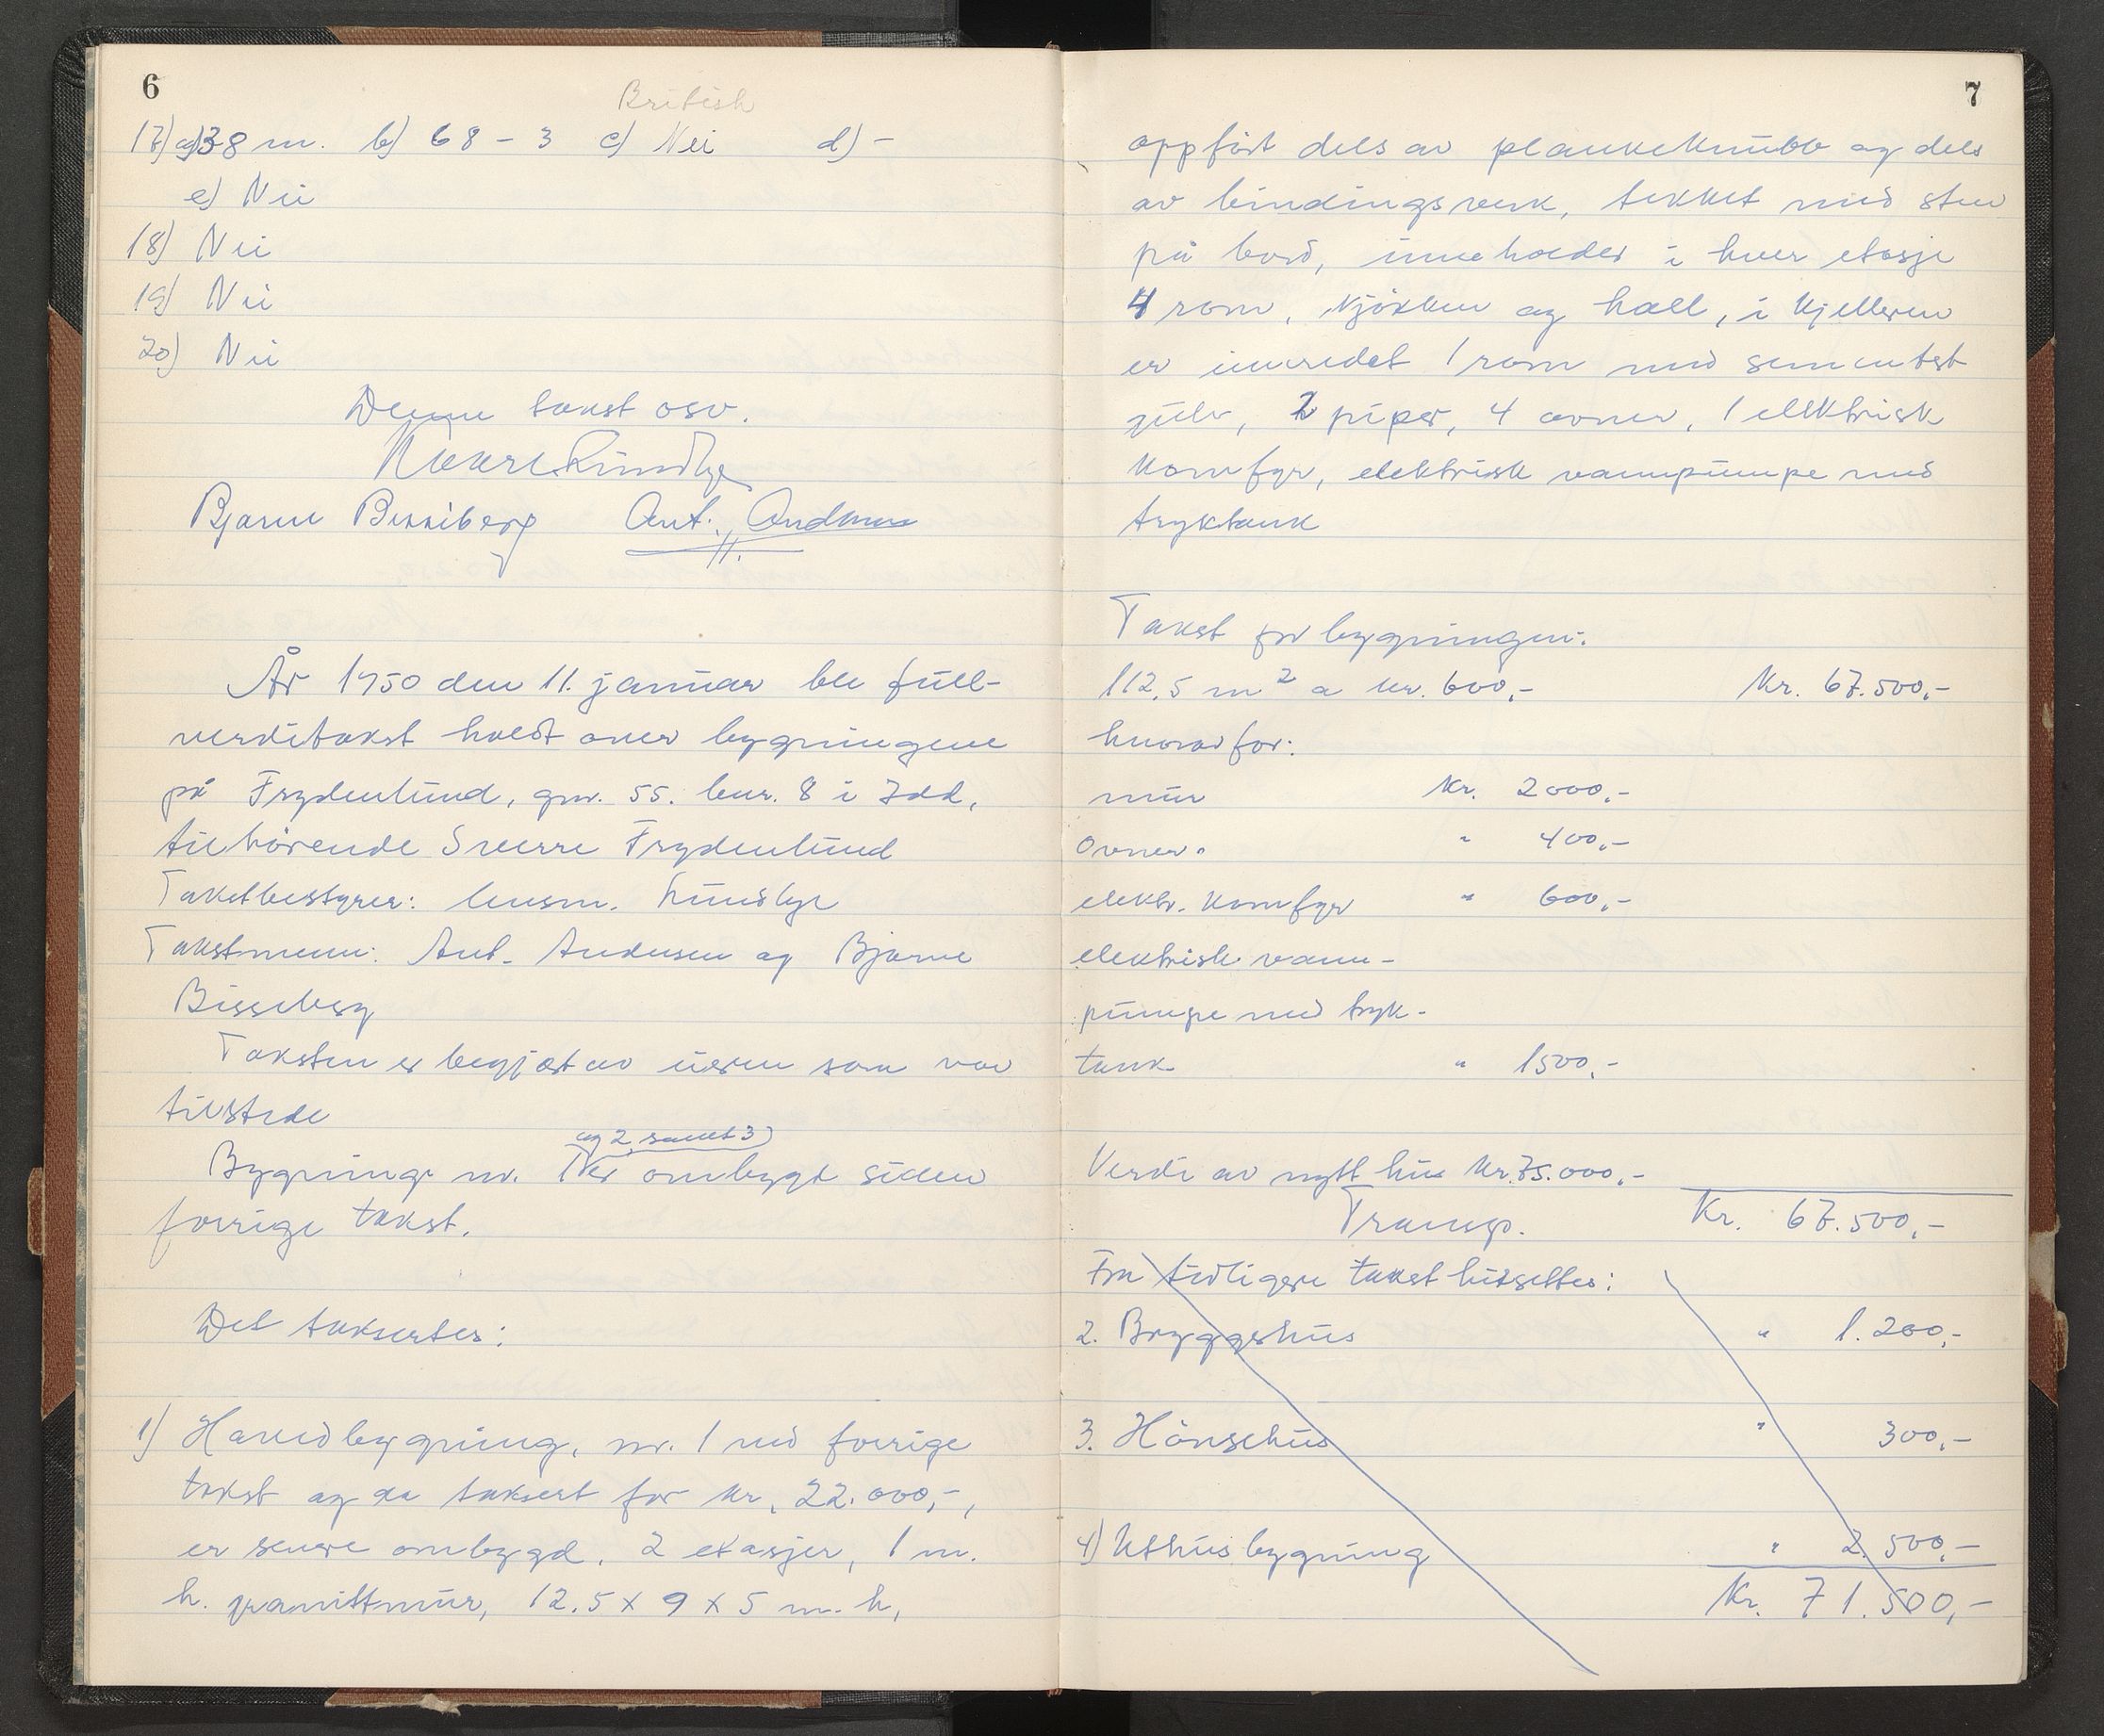 6
British
17) a) 38 m. b) 68 - 3 c) Nei d) -
e) Nei
18) Nei
19) Nei
20) Nei
Denne takst osv.
Bjarne Bissiberg Ant. Andersen
År 1950 den 11. januar ble full-
verditakst holdt over bygningene
på Frydenlund, gnr. 55. bnr. 8 i Idd,
tilhørende Sverre Frydenlund
Takstbestyrer: lensm. Lundbye
Takstmenn: Ant. Andersen og Bjarne
Bisseberg
Taksten er begjært av eieren som var
tilstede
og 2, samt 3)
Bygning nr. 1 er ombygt siden
forrige takst.
Det takseres:
1) Hovedbygning, nr. 1 ved forrige
takst og da taksert for kr. 22.000,-,
er senere ombygd, 2 etasjer, 1 m.
h. granittmur, 12.5 x 9 x 5 m. h,
7
oppført dels av plankekubb og dels
av bindingsverk, tekket med sten
på bord, inneholder i hver etasje
4 rom, kjøkken og hall, i kjelleren
er innredet 1 rom med sementst
gulv, 2 piper, 4 ovner, 1 elektrisk
komfyr, elektrisk vannpumpe med
tryktank
Takst for bygningen:
112,5 m² a kr. 600,- Kr. 67.500,-
hvorav for:
mur Kr. 2000,-
ovner. " 400,-
elektr. komfyr " 600,-
elektrisk vann-
pumpe med tryk-
tank " 1500,-
Verdi av nytt hus kr. 75.000,-
Transp. Kr. 67.500,-
Fra tidligere takst hitsettes:
2. Bryggerhus " 1.200,-
3. Hönsehus " 300,-
4) Uthusbygning " 2.500,-
Kr. 71.500,-